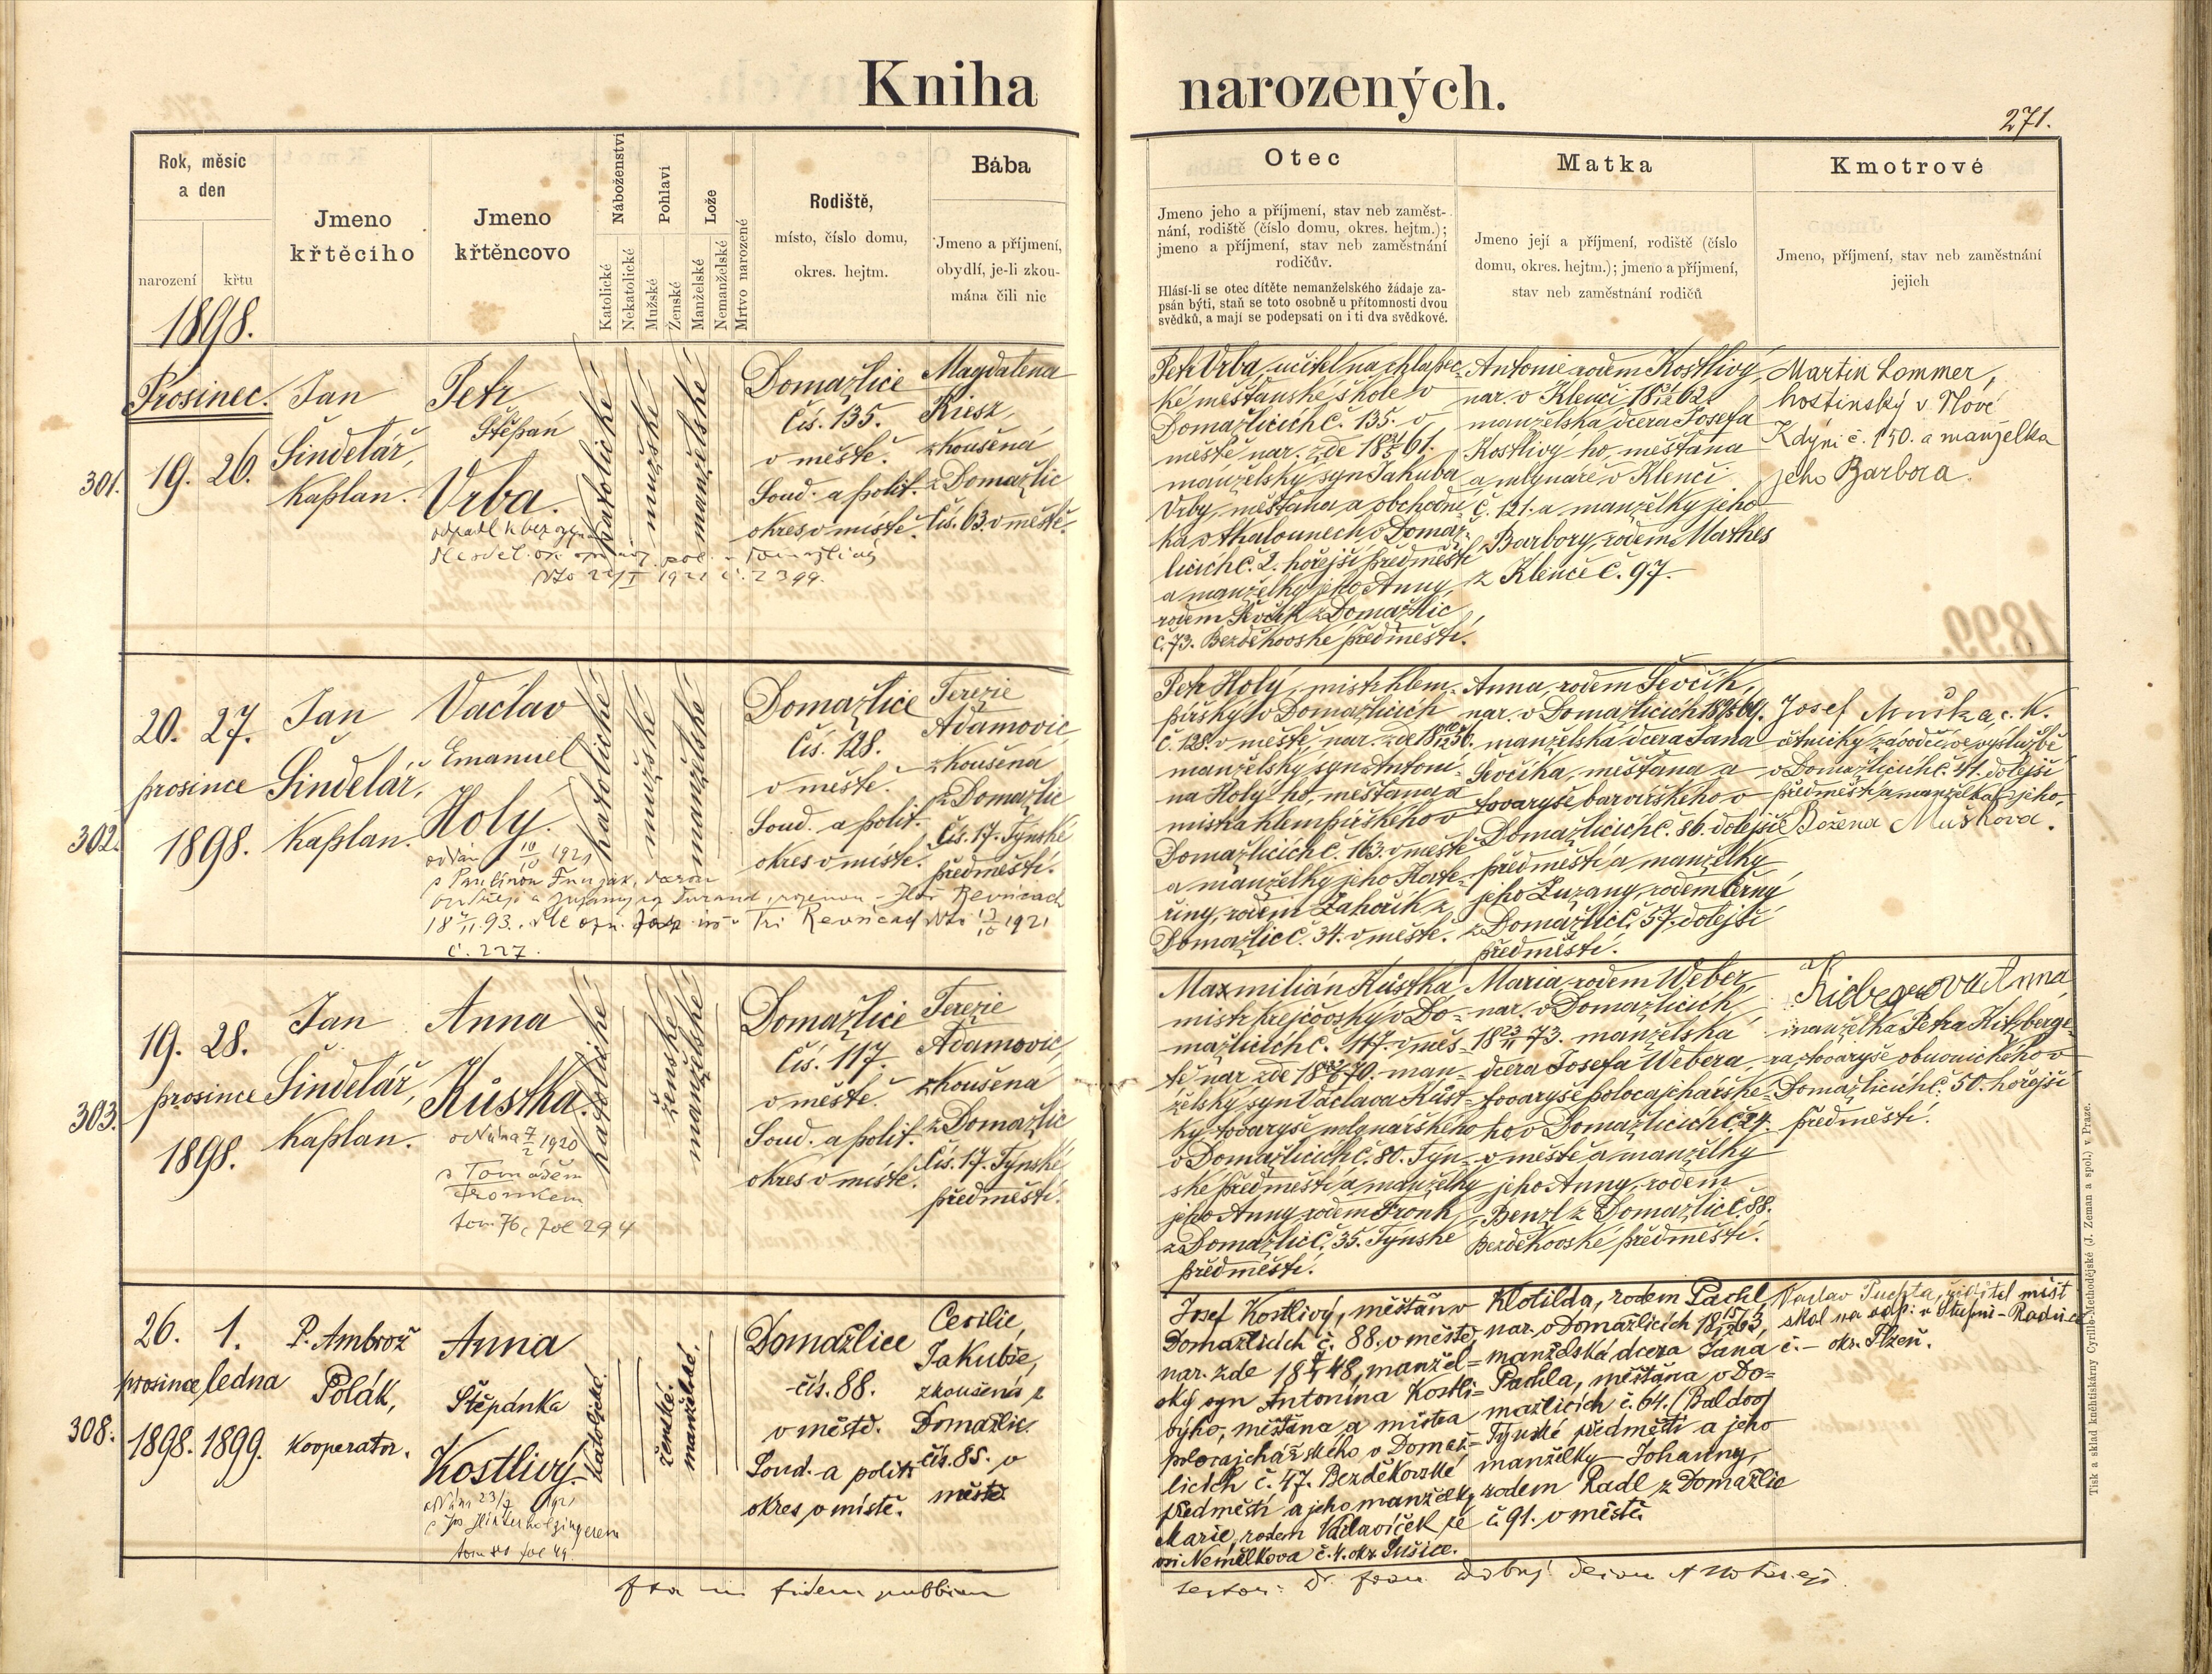 Kniha narozených.
271.
Rok, měsíc
a den
narození
křtu
1898.
Jmeno
křtěcího
Jmeno
křtěncovo
Náboženství
Katolické
Nekatolické
Pohlaví
Mužské
Ženské
Lože
Manželské
Nemanželské
Mrtvo narozené
Rodiště,
místo, číslo domu,
okres. hejtm.
Bába
Jmeno a příjmení,
obydlí, je-li zkou-
mána čili nic
Otec
Jmeno jeho a příjmení, stav neb zaměst-
nání, rodiště (číslo domu, okres. hejtm.);
jmeno a příjmení, stav neb zaměstnání
rodičův.
Hlásí-li se otec dítěte nemanželského žádaje za-
psán býti, staň se toto osobně u přítomnosti dvou
svědků, a mají se podepsati on i ti dva svědkové.
Matka
Jmeno její a příjmení, rodiště (číslo
domu, okres. hejtm.); jmeno a příjmení,
stav neb zaměstnání rodičů
Kmotrové
Jmeno, příjmení, stav neb zaměstnání
jejich
301.
Prosinec.
19. 26.
Jan
Šindelář,
kaplan.
Petr
Štěpán
Vrba.
katolické
mužské
manželské
Domažlice
čís. 135.
v městě.
Soud. a polit.
okres v místě.
Magdalena
Riesz,
zkoušená
z Domažlic
čís. 63. v městě.
Petr Vrba, učitel na chlapec-
ké měšťanské škole v
Domažlicích č. 135. v
městě nar. zde 18 61.
manželský syn Jakuba
Vrby, měšťana a obchodní-
ka v Domaž-
licích č. 2. hořejší předměstí
a manželky jeho Anny,
rodem Ševčík z Domažlic
č. 73. Bezděkovské předměstí.
Antonie rodem Kostlivý,
nar. v Klenčí 18 62.
manželská dcera Josefa
Kostlivý-ho, měšťana
a mlynáře v Klenčí
č. 121. a manželky jeho
Barbory, rodem Mathes
z Klenče č. 97.
Martin Lommer,
hostinský v Nové
Kdyni č. 150. a manželka
jeho Barbora.
302.
20. 27.
prosince
1898.
Jan
Šindelář,
kaplan.
Václav
Emanuel
Holý.
oddán 10/10 1921
č. 227.
katolické
mužské
manželské
Domažlice
čís. 128.
v městě.
Soud. a polit.
okres v místě.
Terezie
Adamovic,
zkoušená
z Domažlic
čís. 17. Týnské
předměstí.
Petr Holý, mistr klem-
pířský v Domažlicích
č. 128. v městě nar. zde 18 56.
manželský syn Antoní-
na Holý-ho, měšťana a
mistra klempířského v
Domažlicích č. 163. v městě
a manželky jeho Kate-
řiny, rodem Záhořík z
Domažlic č. 34. v městě.
Anna, rodem Ševčík,
nar. v Domažlicích 18 69.
manželská dcera Jana
Ševčíka, měšťana a
tovaryše barvířského v
Domažlicích č. 86. dolejší
předměstí a manželky
jeho Zuzany, rodem Černý
z Domažlic č. 57. dolejší
předměstí.
Josef Muška, c. k.
četnický závodčí ve výslužbě
v Domažlicích č. 41. dolejší
předměstí a manželka jeho,
Božena Mušková.
303.
19. 28.
prosince
1898.
Jan
Šindelář,
kaplan.
Anna
Kůstka.
oddána 7/2 1920
s Tomášem
Fronkem
tom 76, fol 294
katolické
ženské
manželské
Domažlice
čís. 117.
v městě.
Soud. a polit.
okres v místě.
Terezie
Adamovic,
zkoušená
z Domažlic
čís. 17. Týnské
předměstí.
Maxmilián Kůstka
mistr krejčovský v Do-
mažlicích č. 117. v měs-
tě nar. zde 18 70. man-
želský syn Václava Kůst-
ky, tovaryše mlynářského
v Domažlicích č. 80. Týn-
ské předměstí a manželky
jeho Anny, rodem Fronk
z Domažlic č. 35. Týnské
předměstí.
Maria, rodem Weber,
nar. v Domažlicích
18 23/11 73. manželská
dcera Josefa Webera,
tovaryše polocajchařské-
ho v Domažlicích č. 24.
v městě a manželky
jeho Anny, rodem
Benzl z Domažlic č. 88.
Bezděkovské předměstí.
Anna
manželka Petra Kitzberge-
ra, tovaryše obuvnického v
Domažlicích č. 50. hořejší
předměstí.
308.
26. 1.
prosince ledna
1898. 1899.
P. Ambrož
Polák,
kooperator.
Anna
Štěpánka
Kostlivý.
oddána 23/7 1921
s Jos Hinterholzingerem
fol 49.
katolické.
ženské.
manželské.
Domažlice
čís. 88.
v městě.
Soud. a polit.
okres v místě.
Cecilie,
Jakubše,
zkoušená z
Domažlic.
čís. 85. v
městě.
Josef Kostlivý, měšťan v
Domažlicích č. 88. v městě,
nar. zde 18 48, manžel-
ský syn Antonína Kostli-
výho, měšťana a mistra
polocajchářského v Domaž-
licích č. 47. Bezděkovské
předměstí a jeho manželky
Marie, rodem Václavíček ze
vsi Nemělkova č. 4. okr. Sušice.
Klotilda, rodem Pachl,
nar. v Domažlicích 18 63,
manželská dcera Jana
Pachla, měšťana v Do-
mažlicích č. 64. (Baldov)
Týnské předměstí a jeho
manželky Johanny,
rodem Radl z Domažlic
č. 91. v městě.
Václav Tuchta, ředitel měšť
škol na odp. v Stupni-Radnice
č. – okr. Plzeň.
fidem
Tisk a sklad knihtiskárny Cyrillo-Methodějské (J. Zeman a spol.) v Praze.